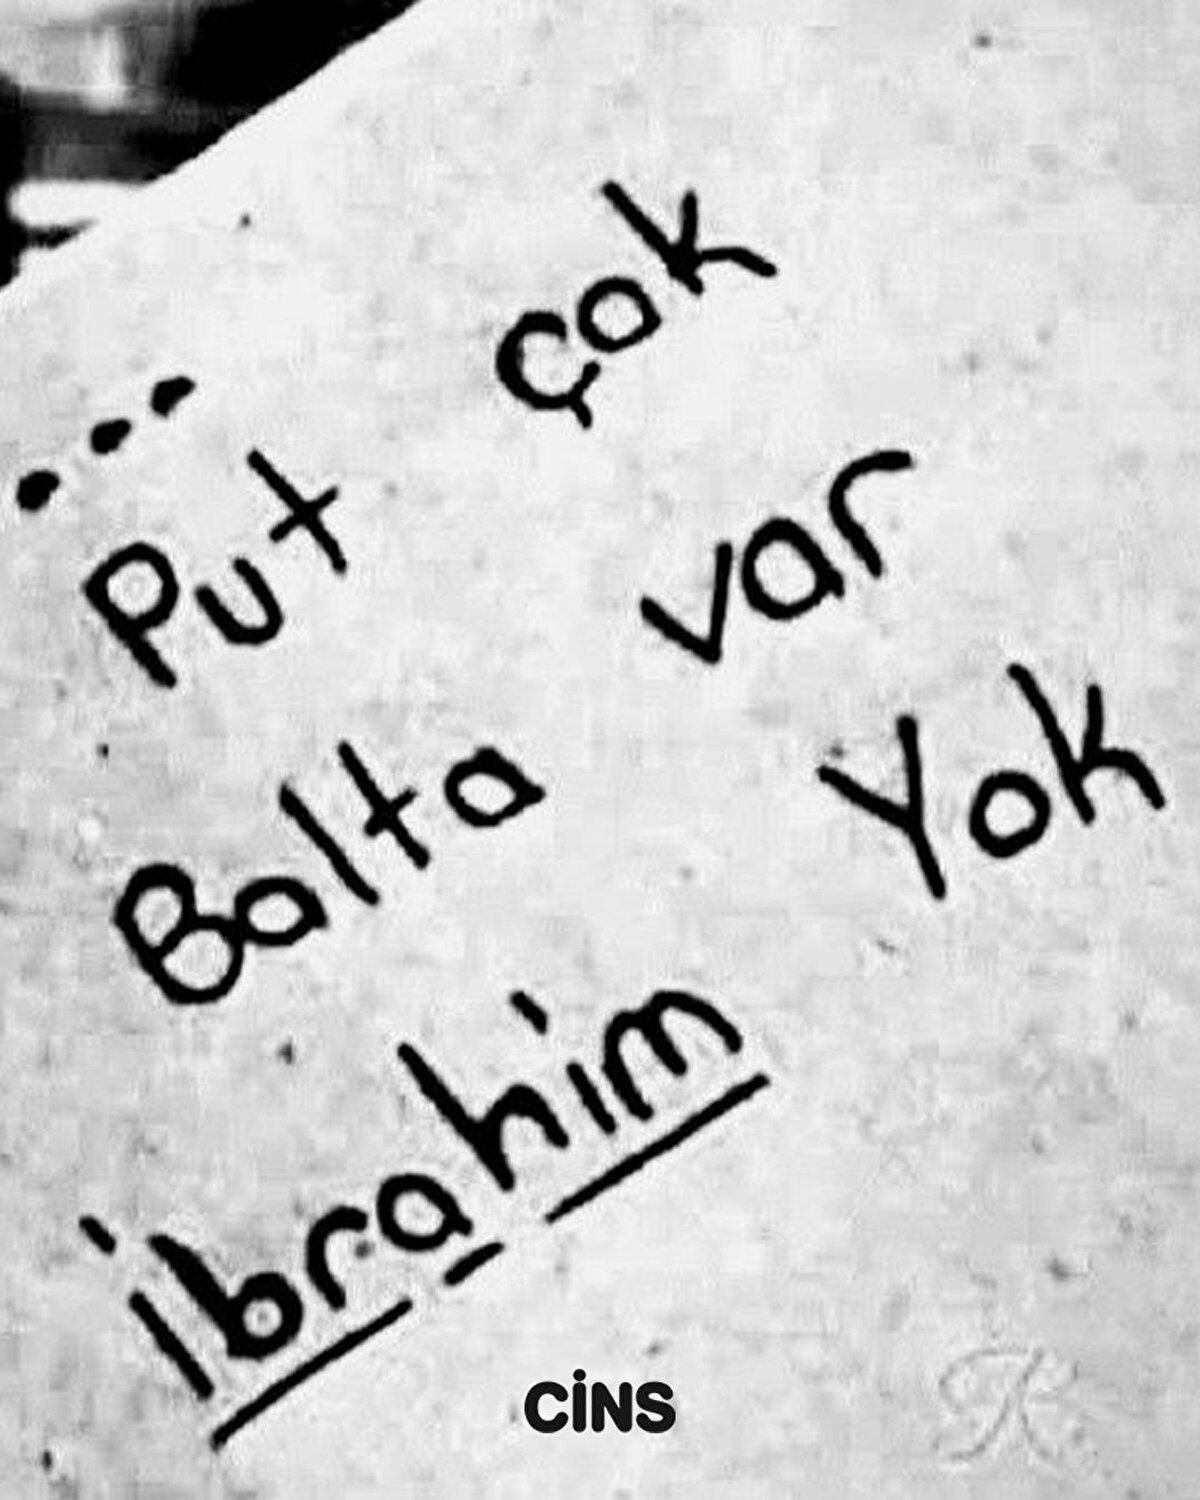 ... Put çok
Balta var
ibrahim Yok
CİNS